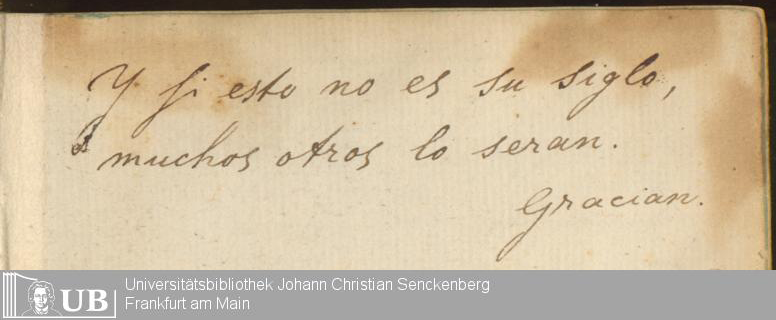 Y si esto no es su siglo,
muchos otros lo seran.
Gracian.
UB Universitätsbibliothek Johann Christian Senckenberg
Frankfurt am Main